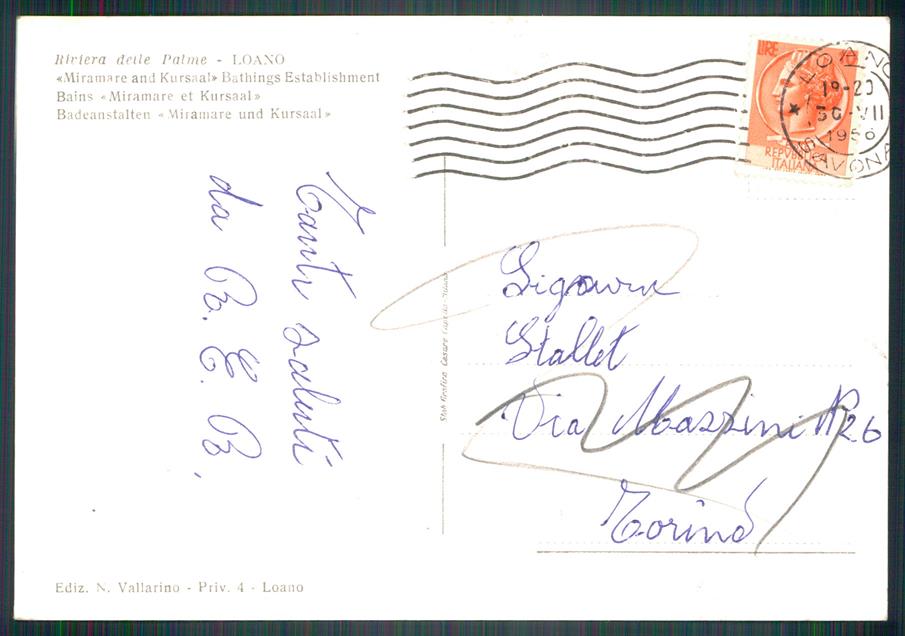 Riviera delle Palme - LOANO
«Miramare and Kursaal» Bathings Establishment
Bains «Miramare et Kursaal»
Badeanstalten «Miramare und Kursaal»
LIRE
REPVBBLICA
ITALIANA
LOANO
19-20
30·VII
1956
SAVONA
Tanti saluti
da R. E. B.
Stallet
Via Mazzini N 26
Torino
Ediz. N. Vallarino - Priv. 4 - Loano